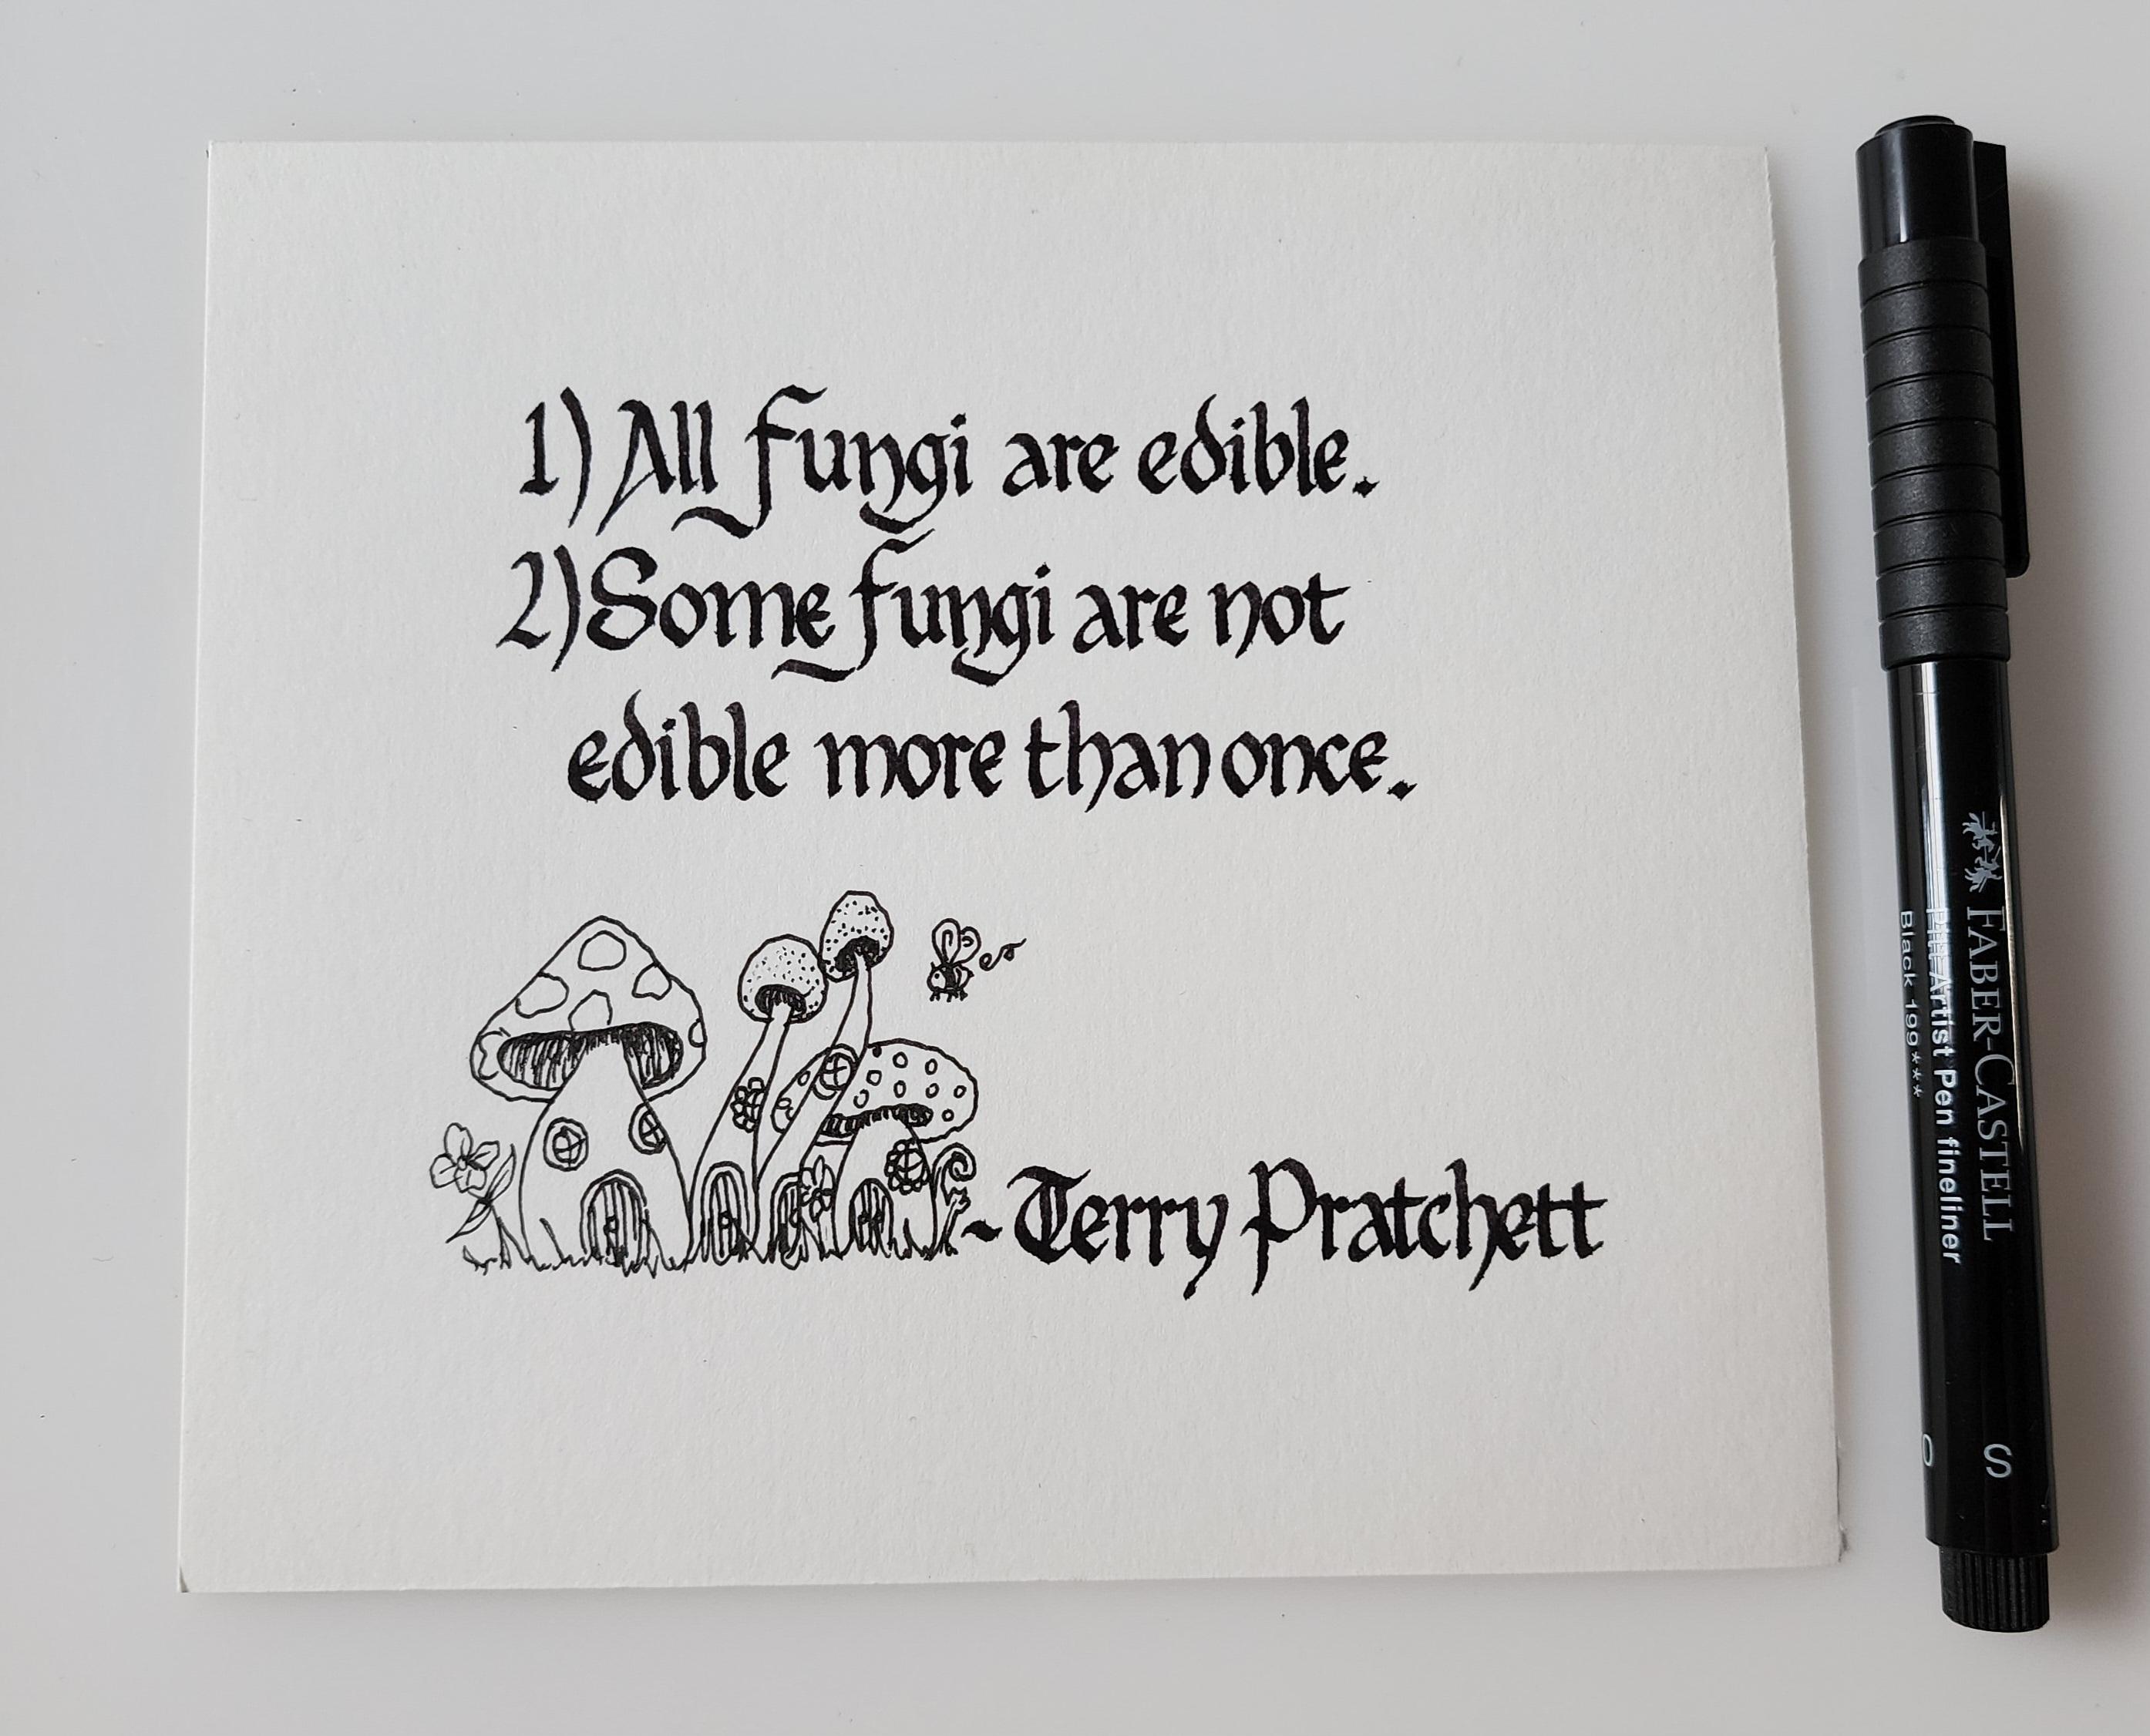 1) All fungi are edible.
2) Some fungi are not
edible more than once.
~ Terry Pratchett
FABER-CASTELL
Pitt Artist Pen fineliner
Black 199***
S